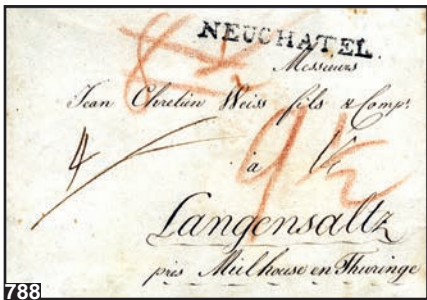 NEUCHATEL.
Messieurs
Jean Chretien Weiss fils & Comp.
4 à
9 1/2
Langensaltz
près Mülhouse en Thuringe
788